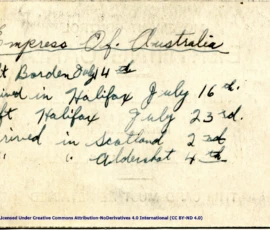 Empress Of. Australia
ft Borden July 14th
rived in Halifax July 16th.
ft Halifax July 23rd.
rrived in Scotland 2nd
" " Aldershot 4th
Licensed Under Creative Commons Attribution-NoDerivatives 4.0 International (CC BY-ND 4.0)